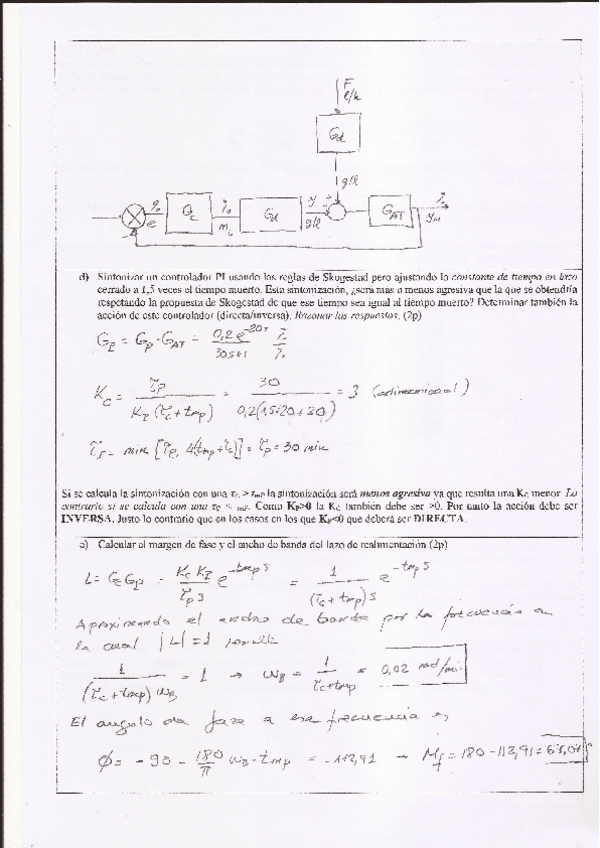 F
l/h
Gd
g/l
%
e
Gc
%
mc
Gu
y
g/l
+
GAT
%
ym
-
d) Sintonizar un controlador PI usando las reglas de Skogestad pero ajustando la constante de tiempo en lazo
cerrado a 1,5 veces el tiempo muerto. Esta sintonización, ¿será mas o menos agresiva que la que se obtendría
respetando la propuesta de Skogestad de que ese tiempo sea igual al tiempo muerto? Determinar también la
acción de este controlador (directa/inversa). Razonar las respuestas. (2p)
G = Gp · GAT = 0,2 e^-20s / 30s+1 %/%
Kc = τp / (τc + tmp) = 30 / 0,2(1,5·20+20) = 3 (adimensional)
= min [τp, 4(tmp+τc)] = τp = 30 min
Si se calcula la sintonización con una τc > tmp la sintonización será menos agresiva ya que resulta una Kc menor. Lo
contrario si se calcula con una τc < tmp. Como Kp>0 la Kc también debe ser >0. Por tanto la acción debe ser
INVERSA. Justo lo contrario que en los casos en los que Kp<0 que deberá ser DIRECTA.
e) Calcular el margen de fase y el ancho de banda del lazo de realimentación (2p)
L = Gc = Kc / τp s e^-tmp s = 1 / (τc + tmp) s e^-tmp s
Aproximando el ancho de banda por la frecuencia en
la cual |L| = 1 resulta
1 / (τc + tmp) ωB = 1 → ωB = 1 / τc + tmp = 0,02 rad/min
El angulo de fase a esa frecuencia es
φ = - 90 - 180/π ωB · tmp = - 112,91 → Mf = 180 - 112,91 = 67,0